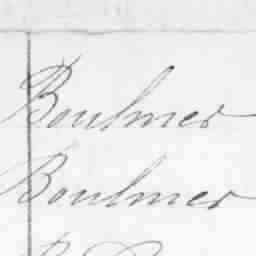 Boulmer
Boulmer